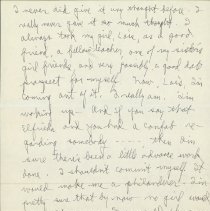 I never did give it any thought before. I
really never gave it so much thought. I
always took my girl, Lois, as a good
friend, a fellow teacher, one of my sister's
girl friends and very possibly a good date
prospect for myself. Now Lois, I'm
coming out of it. I really am. I'm
waking up - And if you say that
and you had a
regarding somebody ------. then I'm
sure there's been a little advance work
done. I shouldn't commit myself. It
would make me a philanderer. I'm
pretty sure that by now no girl would